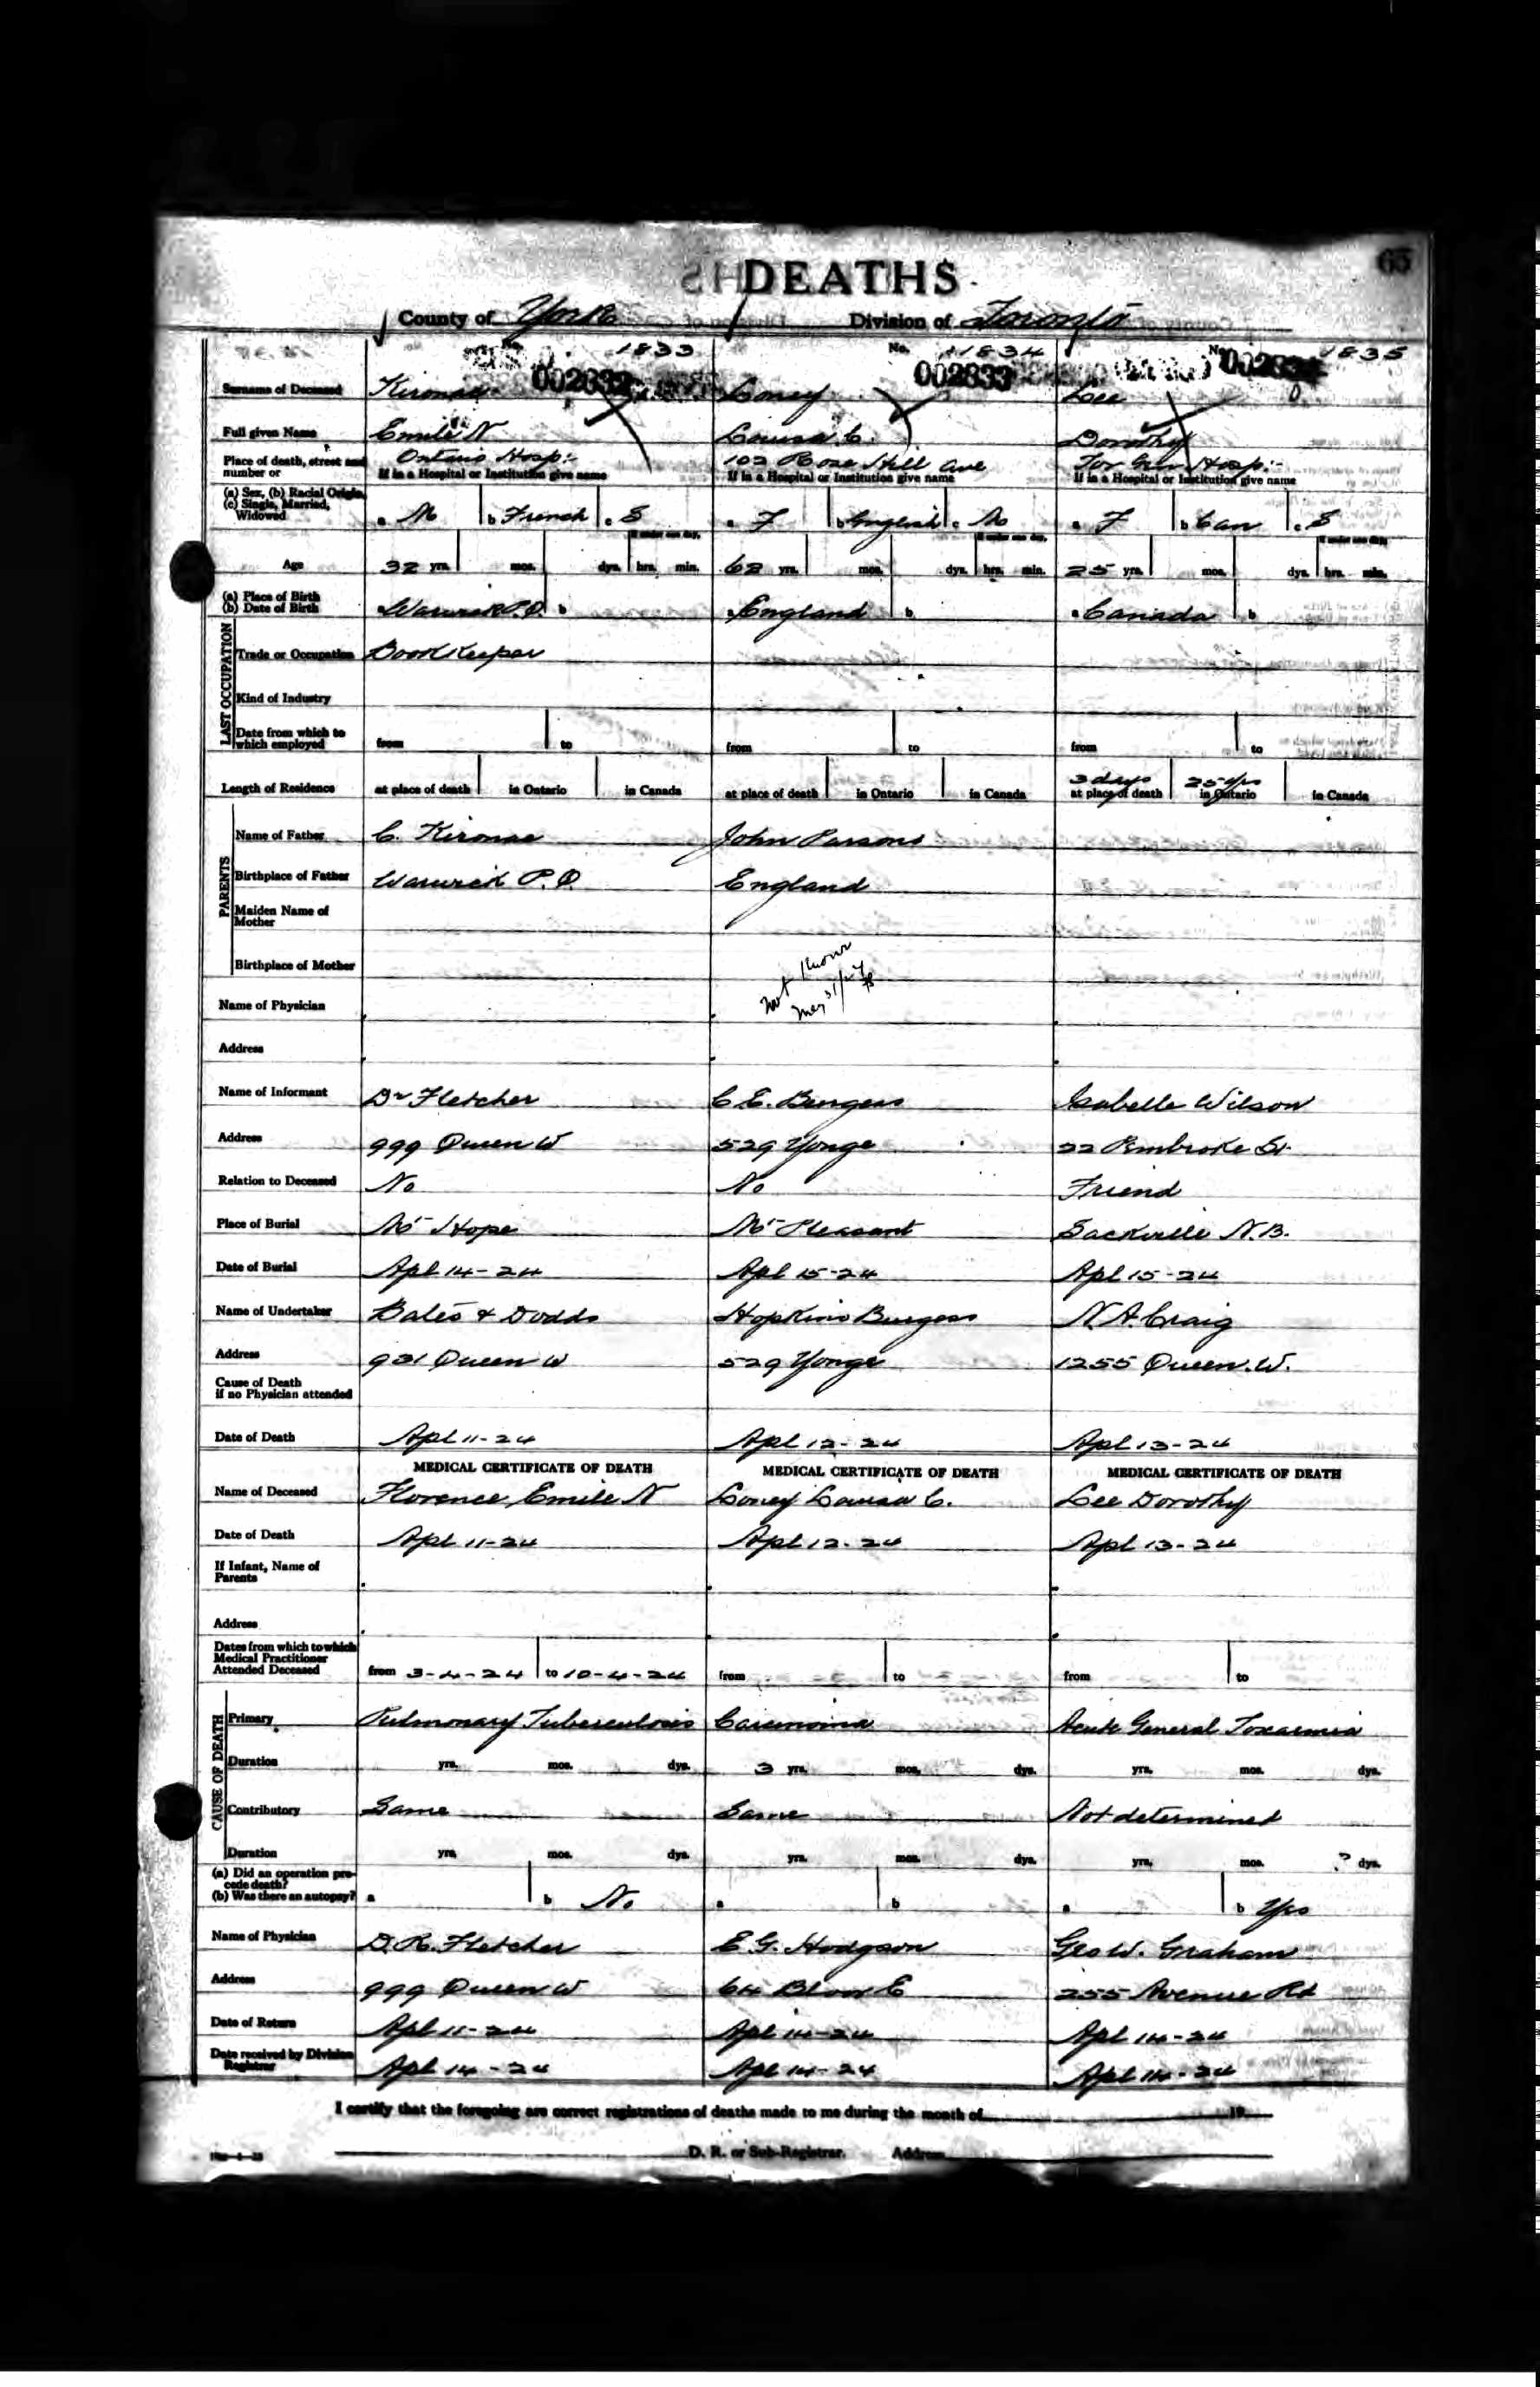 DEATHS
65
County of York Division of Toronto
No. 1833 No. 11834 No. 1835
002832 002833
Surname of Deceased Loney Lee
Full given Name Emile N Louisa C. Dorothy
Place of death, street and number or Ontario Hosp:- 102 Rose Hill Ave Tor Gen Hosp:-
If in a Hospital or Institution give name If in a Hospital or Institution give name If in a Hospital or Institution give name
(a) Sex, (b) Racial Origin,
(c) Single, Married,
Widowed a M b French c S a F b English c M a F b Can c S
If under one day, If under one day, If under one day,
Age 32 yrs. mos. dys. hrs. min. 62 yrs. mos. dys. hrs. min. 25 yrs. mos. dys. hrs. min.
(a) Place of Birth
(b) Date of Birth a Warwick P.Q. b a England b a Canada b
LAST OCCUPATION
Trade or Occupation BookKeeper
Kind of Industry
Date from which to
which employed from to from to from to
3 days 25 yrs
Length of Residence at place of death in Ontario in Canada at place of death in Ontario in Canada at place of death in Ontario in Canada
PARENTS
Name of Father C. John Parsons
Birthplace of Father Warwick P.Q. England
Maiden Name of
Mother
Birthplace of Mother
not known
May 31/24
Name of Physician
Address
Name of Informant Dr Fletcher C E. Burgess Isabelle Wilson
Address 999 Queen W 529 Yonge 22 Pembroke St.
Relation to Deceased No No Friend
Place of Burial Mt Hope Mt Pleasant Sackville N.B.
Date of Burial Apl 14-24 Apl 15-24 Apl 15-24
Name of Undertaker Bates & Dodds Hopkins Burgess N. A. Craig
Address 931 Queen W 529 Yonge 1255 Queen. W.
Cause of Death
if no Physician attended
Date of Death Apl 11-24 Apl 12-24 Apl 13-24
MEDICAL CERTIFICATE OF DEATH MEDICAL CERTIFICATE OF DEATH MEDICAL CERTIFICATE OF DEATH
Name of Deceased Florence Emile N Loney Louisa C. Lee Dorothy
Date of Death Apl 11-24 Apl 12-24 Apl 13-24
If Infant, Name of
Parents
Address
Dates from which to which
Medical Practitioner
Attended Deceased from 3-4-24 to 10-4-24 from to from to
CAUSE OF DEATH
Primary Pulmonary Tuberculosis Carcinoma Acute General Toxaemia
Duration yrs. mos. dys. 3 yrs. mos. dys. yrs. mos. dys.
Contributory Same Same Not determined
Duration yrs. mos. dys. yrs. mos. dys. yrs. mos. ? dys.
(a) Did an operation pre-
cede death?
(b) Was there an autopsy? a b No a b a b Yes
Name of Physician D. R. Fletcher E G. Hodgson Geo W. Graham
Address 999 Queen W 64 Bloor E 255 Avenue Rd
Date of Return Apl 11-24 Apl 14-24 Apl 14-24
Date received by Division
Registrar Apl 14-24 Apl 14-24 Apl 14-24
I certify that the foregoing are correct registrations of deaths made to me during the month of 19
D. R. or Sub-Registrar. Address